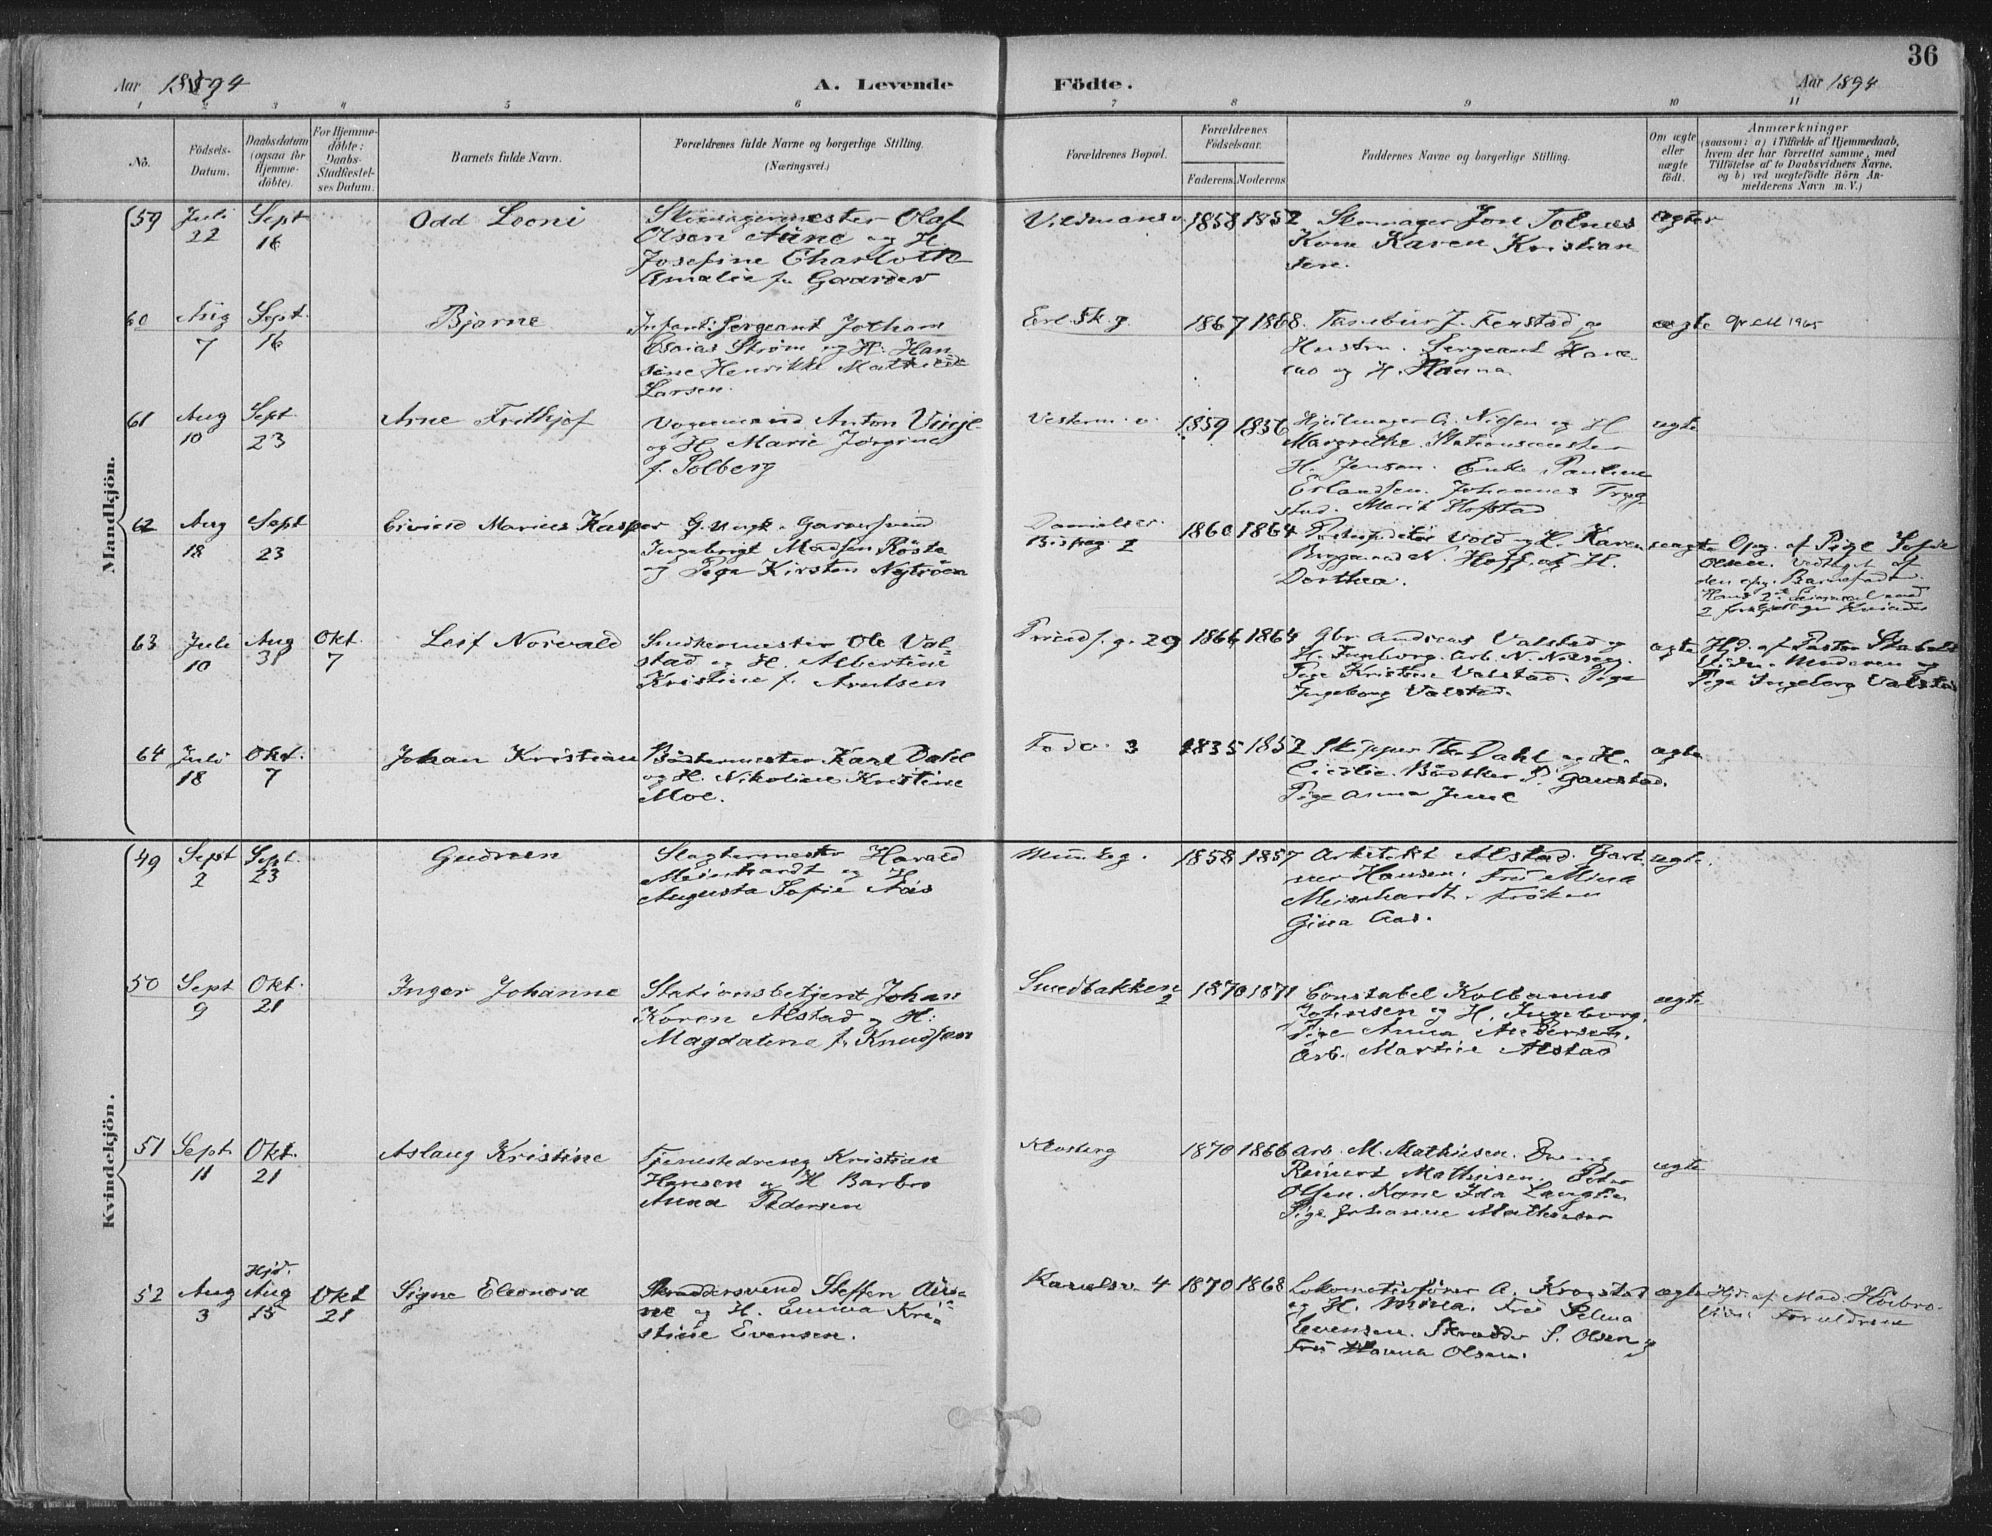 36
Aar 1894
A. Levende
Födte.
Aar 1894
1 2 3 4 5 6 7 8 9 10 11
No.
Födsels-
Datum.
Daabsdatum
(ogsaa for
Hjemme-
döbte).
For Hjemme-
döbte:
Daabs-
Stadfæstel-
ses Datum.
Barnets fulde Navn.
Forældrenes fulde Navne og borgerlige Stilling.
(Næringsvei.)
Forældrenes Bopæl.
Forældrenes
Födselsaar.
Faderens. Moderens
Faddernes Navne og borgerlige Stilling.
Om ægte
eller
uægte
födt.
Anmærkninger
(saasom: a) i Tilfælde af Hjemmedaab,
hvem der har forrettet samme, med
Tilföielse af to Daabsvidners Navne,
og b) ved uægtefödte Börn An-
melderens Navn m. V.)
Mandkjön.
59
Juli
22
Sept
16
Odd Leoni
Skomagermester Olaf
Olsen Aune og H.
Josefine Charlotte
Amalie f. Gaarder
1858 1852
Skomager Jon Tolnes
Kone Karen Kristian
sen.
ægte
60
Aug
7
Sept.
16
Bjarne
Infant: Sergeant Jotham
Esaias Strøm og H. Han
sine Henrikke Mathilde
Larsen.
1867 1868.
Tambur J. Ferstad og
Hustru. Sergeant
og H. Hanna.
ægte
1965
61
Aug
10
Sept.
23
Arne Frithjof
Vognmand Anton Vinje
og H. Marie Jørgine
f. Solberg
Vesterm. v.
1859 1856
Hjulmager G. Nielsen og H
Margrethe. Stationsmester
H. Jensen. Enke Pauline
Erlandsen. Johannes Tryg
stad. Marit Hofstad
ægte
62
Aug
18
Sept
23
Eivind Marius Kasper
G. Ungk. Garversvend
Ingebrigt Madsen Röste
og Pige Kirsten Nyströen
Danielsv.
Bispeg. 2
1860 1864
Vold og H. Karen
N. Hoff og H.
Dorthea.
uægte
Opg. af Pige Sofie
Olsen. Vedtaget af
den opg. Barnefader.
Hans 2det Leiermaal med
2 forskjellige Kvinder
63
Juli
10
Aug
31
Okt.
7
Leif Norvald
Snekkermester Ole Val-
stad og H. Albertine
Kristine f. Arntsen
29
1866 1864
Gbr Andreas Valstad og
H. Ingeborg. Arb. N. Nilsen.
Pige Kristine Valstad. Pige
Ingeborg Valstad.
ægte
Hjd. af Pastor
Vidn. Moderen og
Pige Ingeborg Valstad
64
Juli
18
Okt.
7
Johan Kristian
Bödkermester Karl Dahl
og H. Nikoline Kristine
Moe.
3
1835 1852
Skipper Dahl og H.
Cicilie. Bödtker P. Gaustad.
Pige Anna June
ægte
Kvindekjön.
49
Sept
2
Sept.
23
Gudrun
Slagtermester Harald
Meinhardt og H.
Augusta Sofie Aas
Munkeg.
1858 1857
Arkitekt Alstad. Gart
ner Hansen. Fru Mina
Meinhardt. Fröken
Gina Aas.
ægte
50
Sept
9
Okt.
21
Inger Johanne
Stationsbetjent Johan
Koren Alstad og H:
Magdalene f. Knudsen
Smedbakken
2
1870 1871
Constabel Kolbanus
Johnsen og H. Ingeborg.
Pige Anna Andersen.
Arb. Martin Alstad
ægte
51
Sept.
11
Okt.
21
Aslaug Kristine
Tjenestedreng Kristian
Hansen og H Barbro
Anna Pedersen
Klosterg
1870 1866
Arb. M. Mathisen. Dreng
Reinert Mathisen. Peter
Olsen. Kone Ida
Pige Johanne Mathisen
ægte
52
Aug
3
Hjd.
Aug
15
Okt
21
Signe Eleonora
Skræddersvend Steffen Au-
ne og H. Emma Kri-
stine Evensen.
4
1870 1868
Lokomotivfører A. Krogstad
og H. Mina. Frk Selma
Evensen. Skrædder S. Olsen og
Frk Hanna Olsen.
ægte
Hjd. af Mad. Höibro.
Vidn: Forældrene